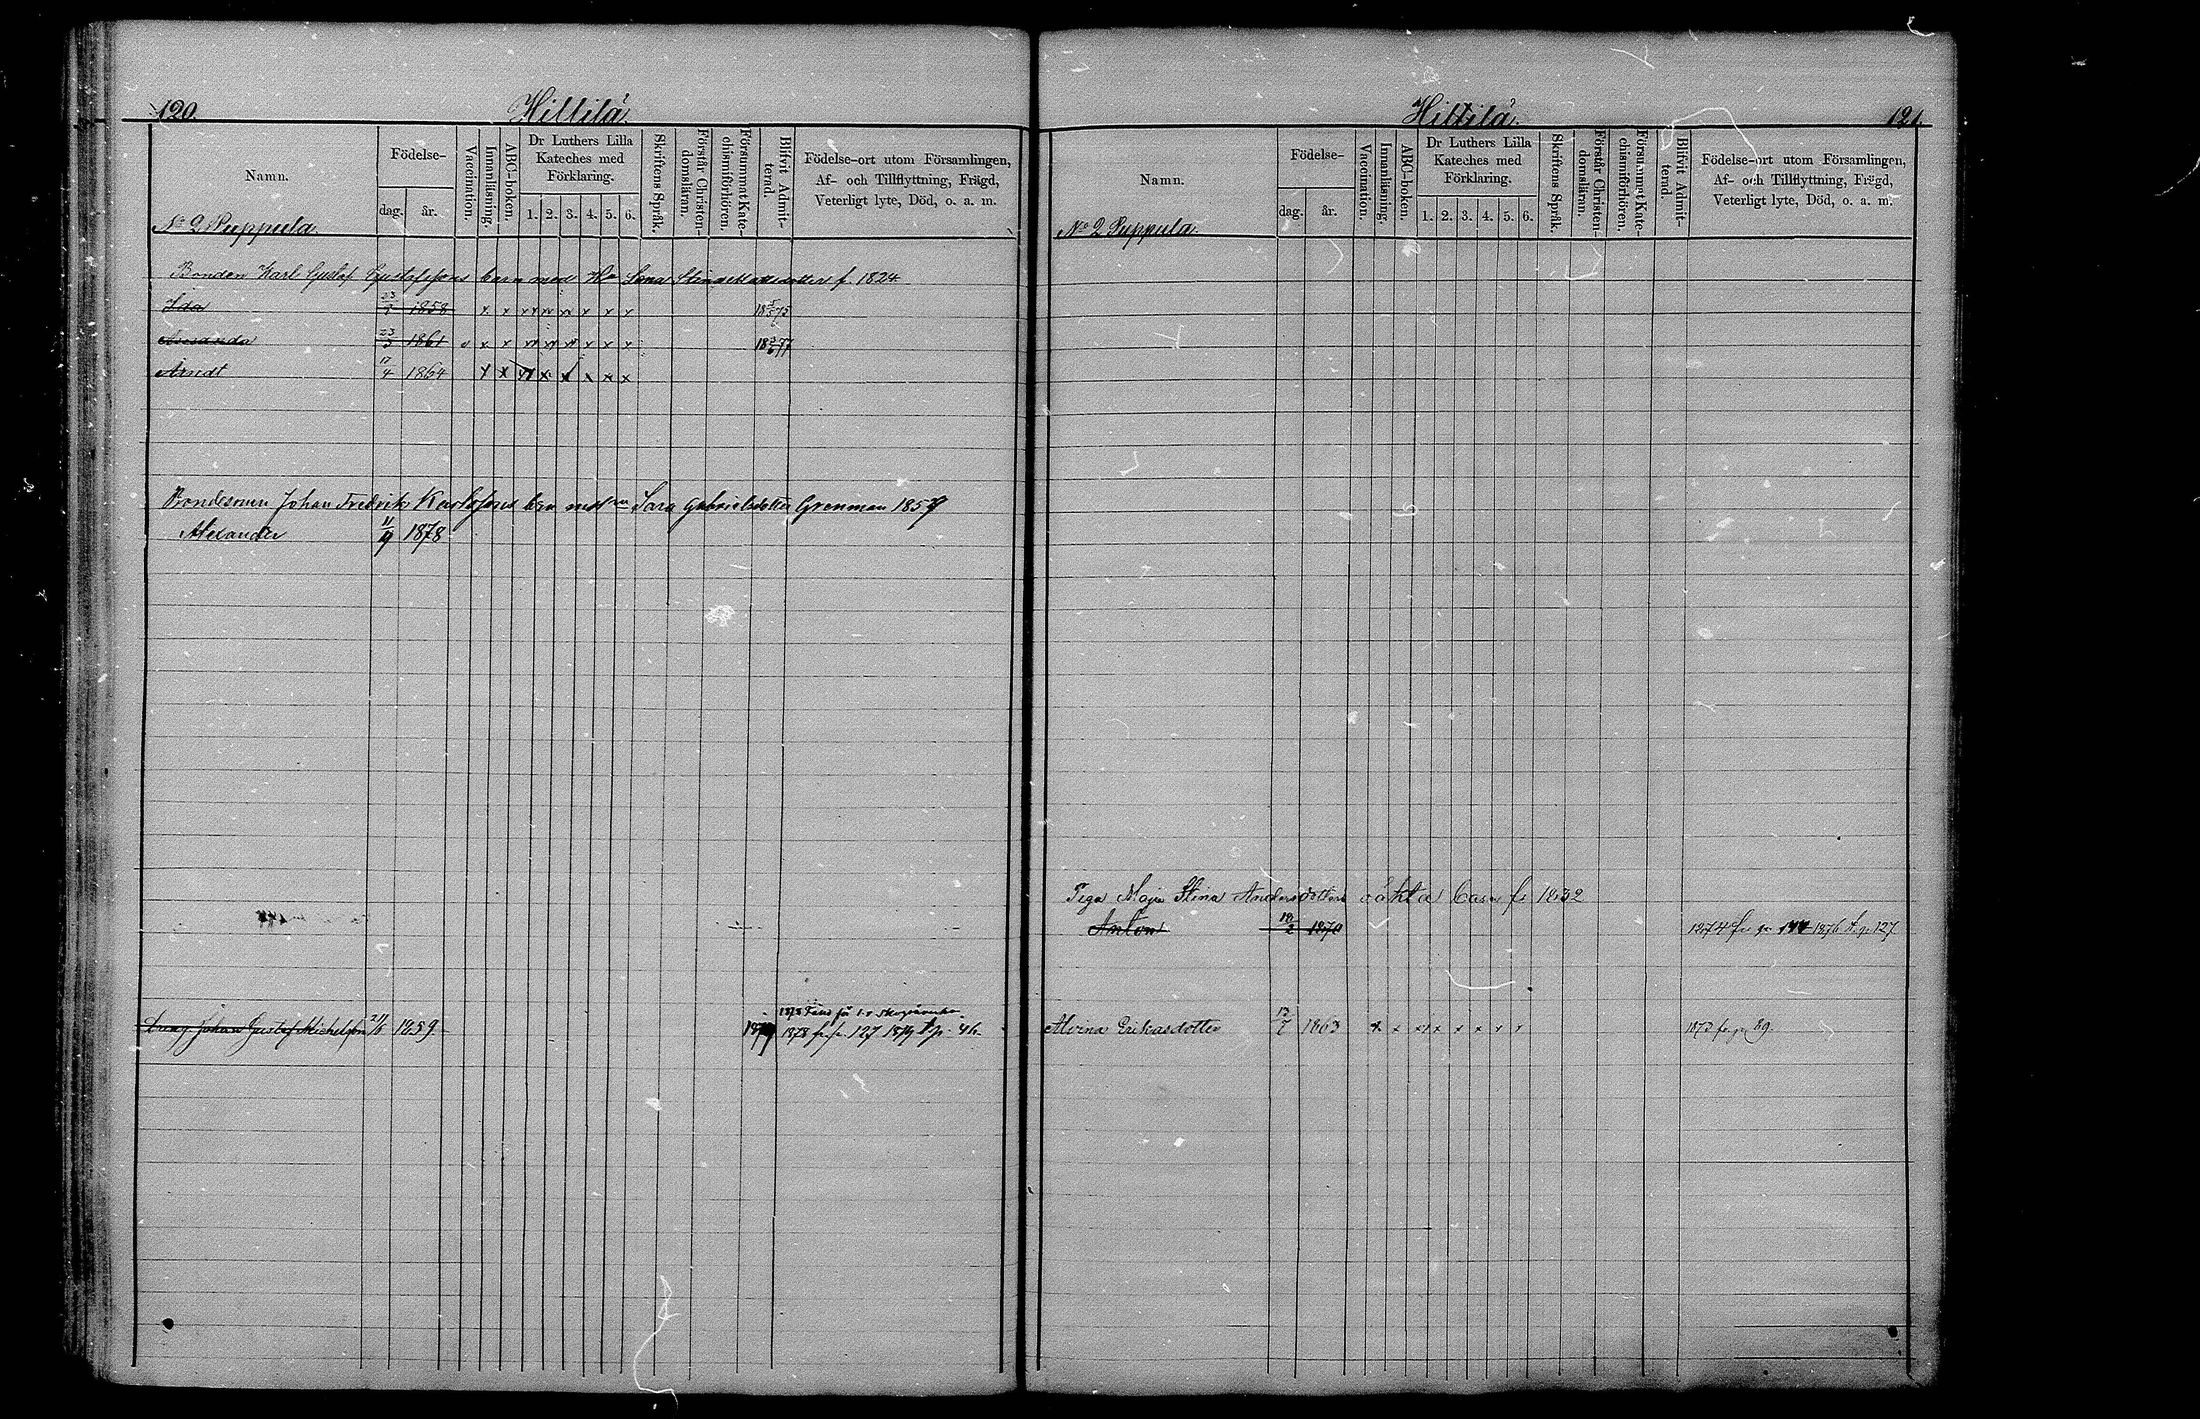 120.
Hiltilä
Namn.
Födelse-
dag.
år.
Vaccination.
Innanläsning.
ABC-boken.
Dr Luthers Lilla
Kateches med
Förklaring.
1. 2. 3. 4. 5. 6.
Skriftens Språk.
Förstår Christen-
domsläran.
Försummat Kate-
chismiförhören.
Blifvit Admit-
terad.
Födelse-ort utom Församlingen,
Af- och Tillflyttning, Frägd,
Veterligt lyte, Död, o. a. m.
No 2 Puppula.
Bonden Karl Gustaf Gustafssons barn med Ho Lena f. 1824
Ida 23/9 1858 x x x x x x x x 18 75
Amanda 23/3 1861 x x x x x x x 18 77
Arndt 17/4 1864 x x x x x x x x
Bondesonen Johan Fredrik Karlssons barn med Sara Gabrielsdotter Grenman 1857
Alexander 11/9 1878
1878
Johan Gustaf Michelsson 21/5 1859 1878 fr. p. 127 1879 t. p. 46
Hiltilä
121.
Namn.
Födelse-
dag.
år.
Vaccination.
Innanläsning.
ABC-boken.
Dr Luthers Lilla
Kateches med
Förklaring.
1. 2. 3. 4. 5. 6.
Skriftens Språk.
Förstår Christen-
domsläran.
Försummat Kate-
chismiförhören.
Blifvit Admit-
terad.
Födelse-ort utom Församlingen,
Af- och Tillflyttning, Frägd,
Veterligt lyte, Död, o. a. m.
No 2 Puppula.
Piga Maja Stina Andersdotters oäkta barn f. 1832
Anton 18/2 1870 1874 fr. p. 1876 t. p. 127
Alvina Eriksdotter 1863 x x x x x x x x fr. p. 89